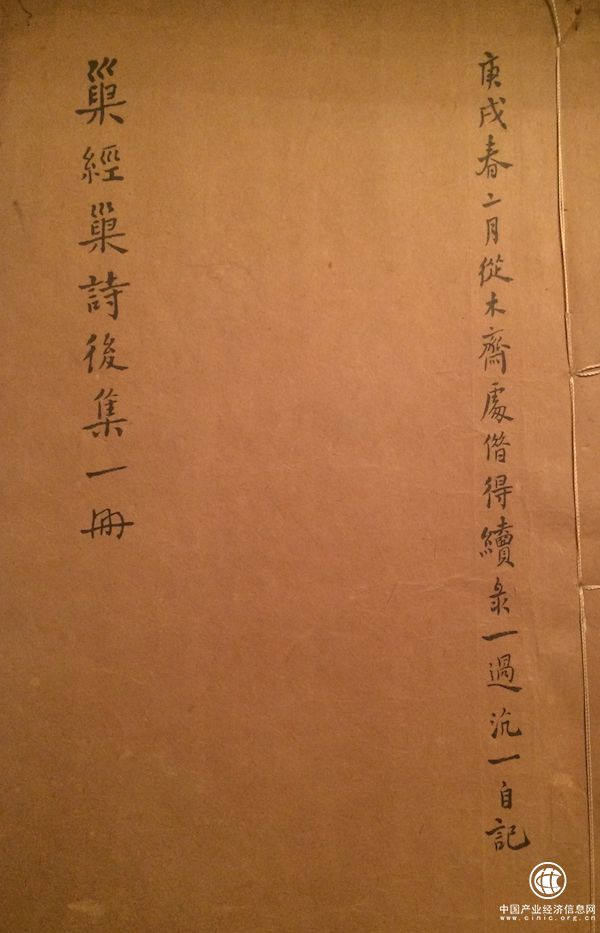 庚戌春二月從木齋處借得續彔一過沆一自記
巢經巢詩後集一冊
中国产业经济信息网
www.cinic.org.cn